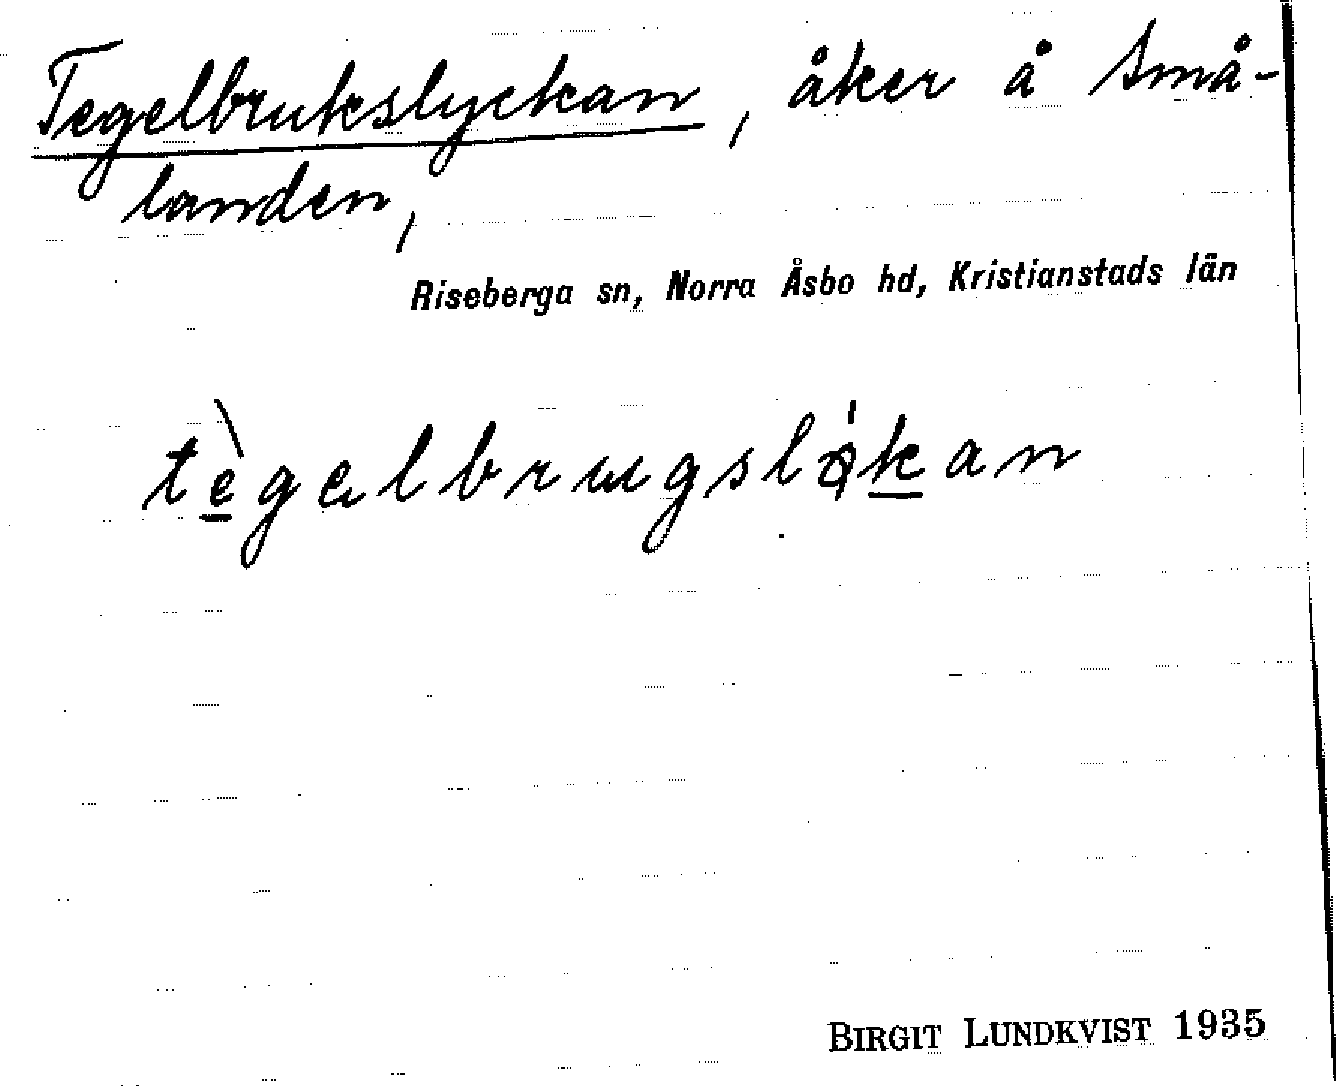 Tegelbrukslyckan, åker å Små-
landen,
Riseberga sn, Norra Åsbo hd, Kristianstads län
tègelbrugsløkan
BIRGIT LUNDKVIST 1935